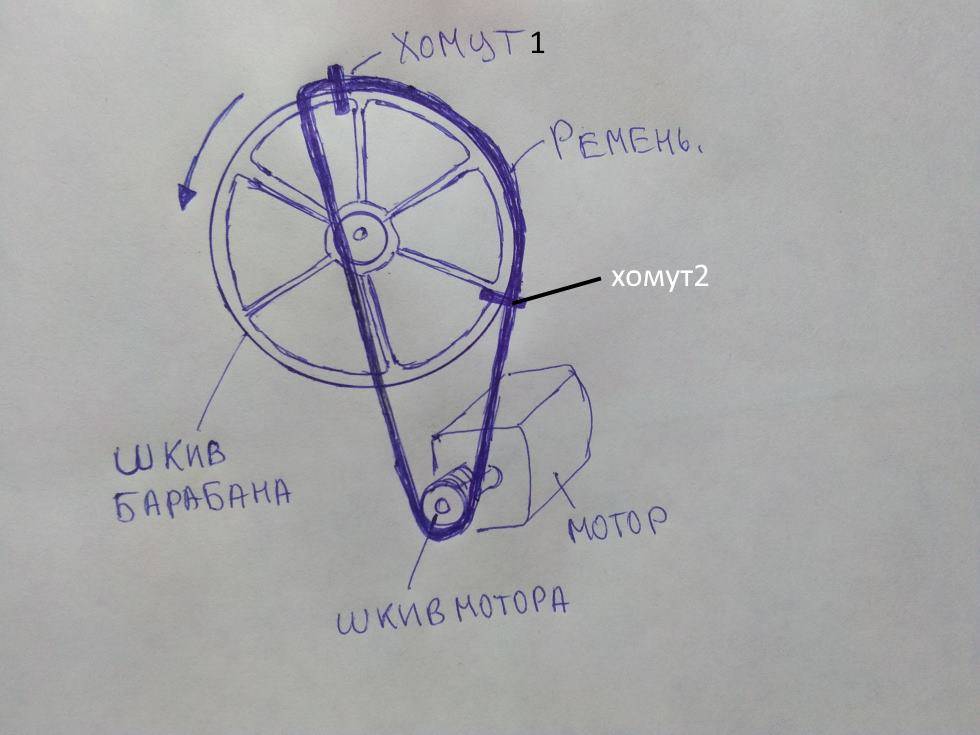 ХОМУТ 1
РЕМЕНЬ.
хомут2
ШКИВ
БАРАБАНА
МОТОР
ШКИВ МОТОРА